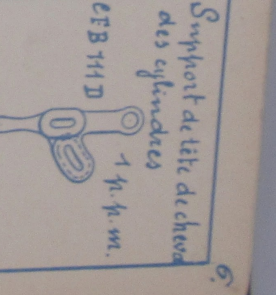 6.
Support de tête de cheva
des cylindres
1 p.p.m.
CFB 111 D